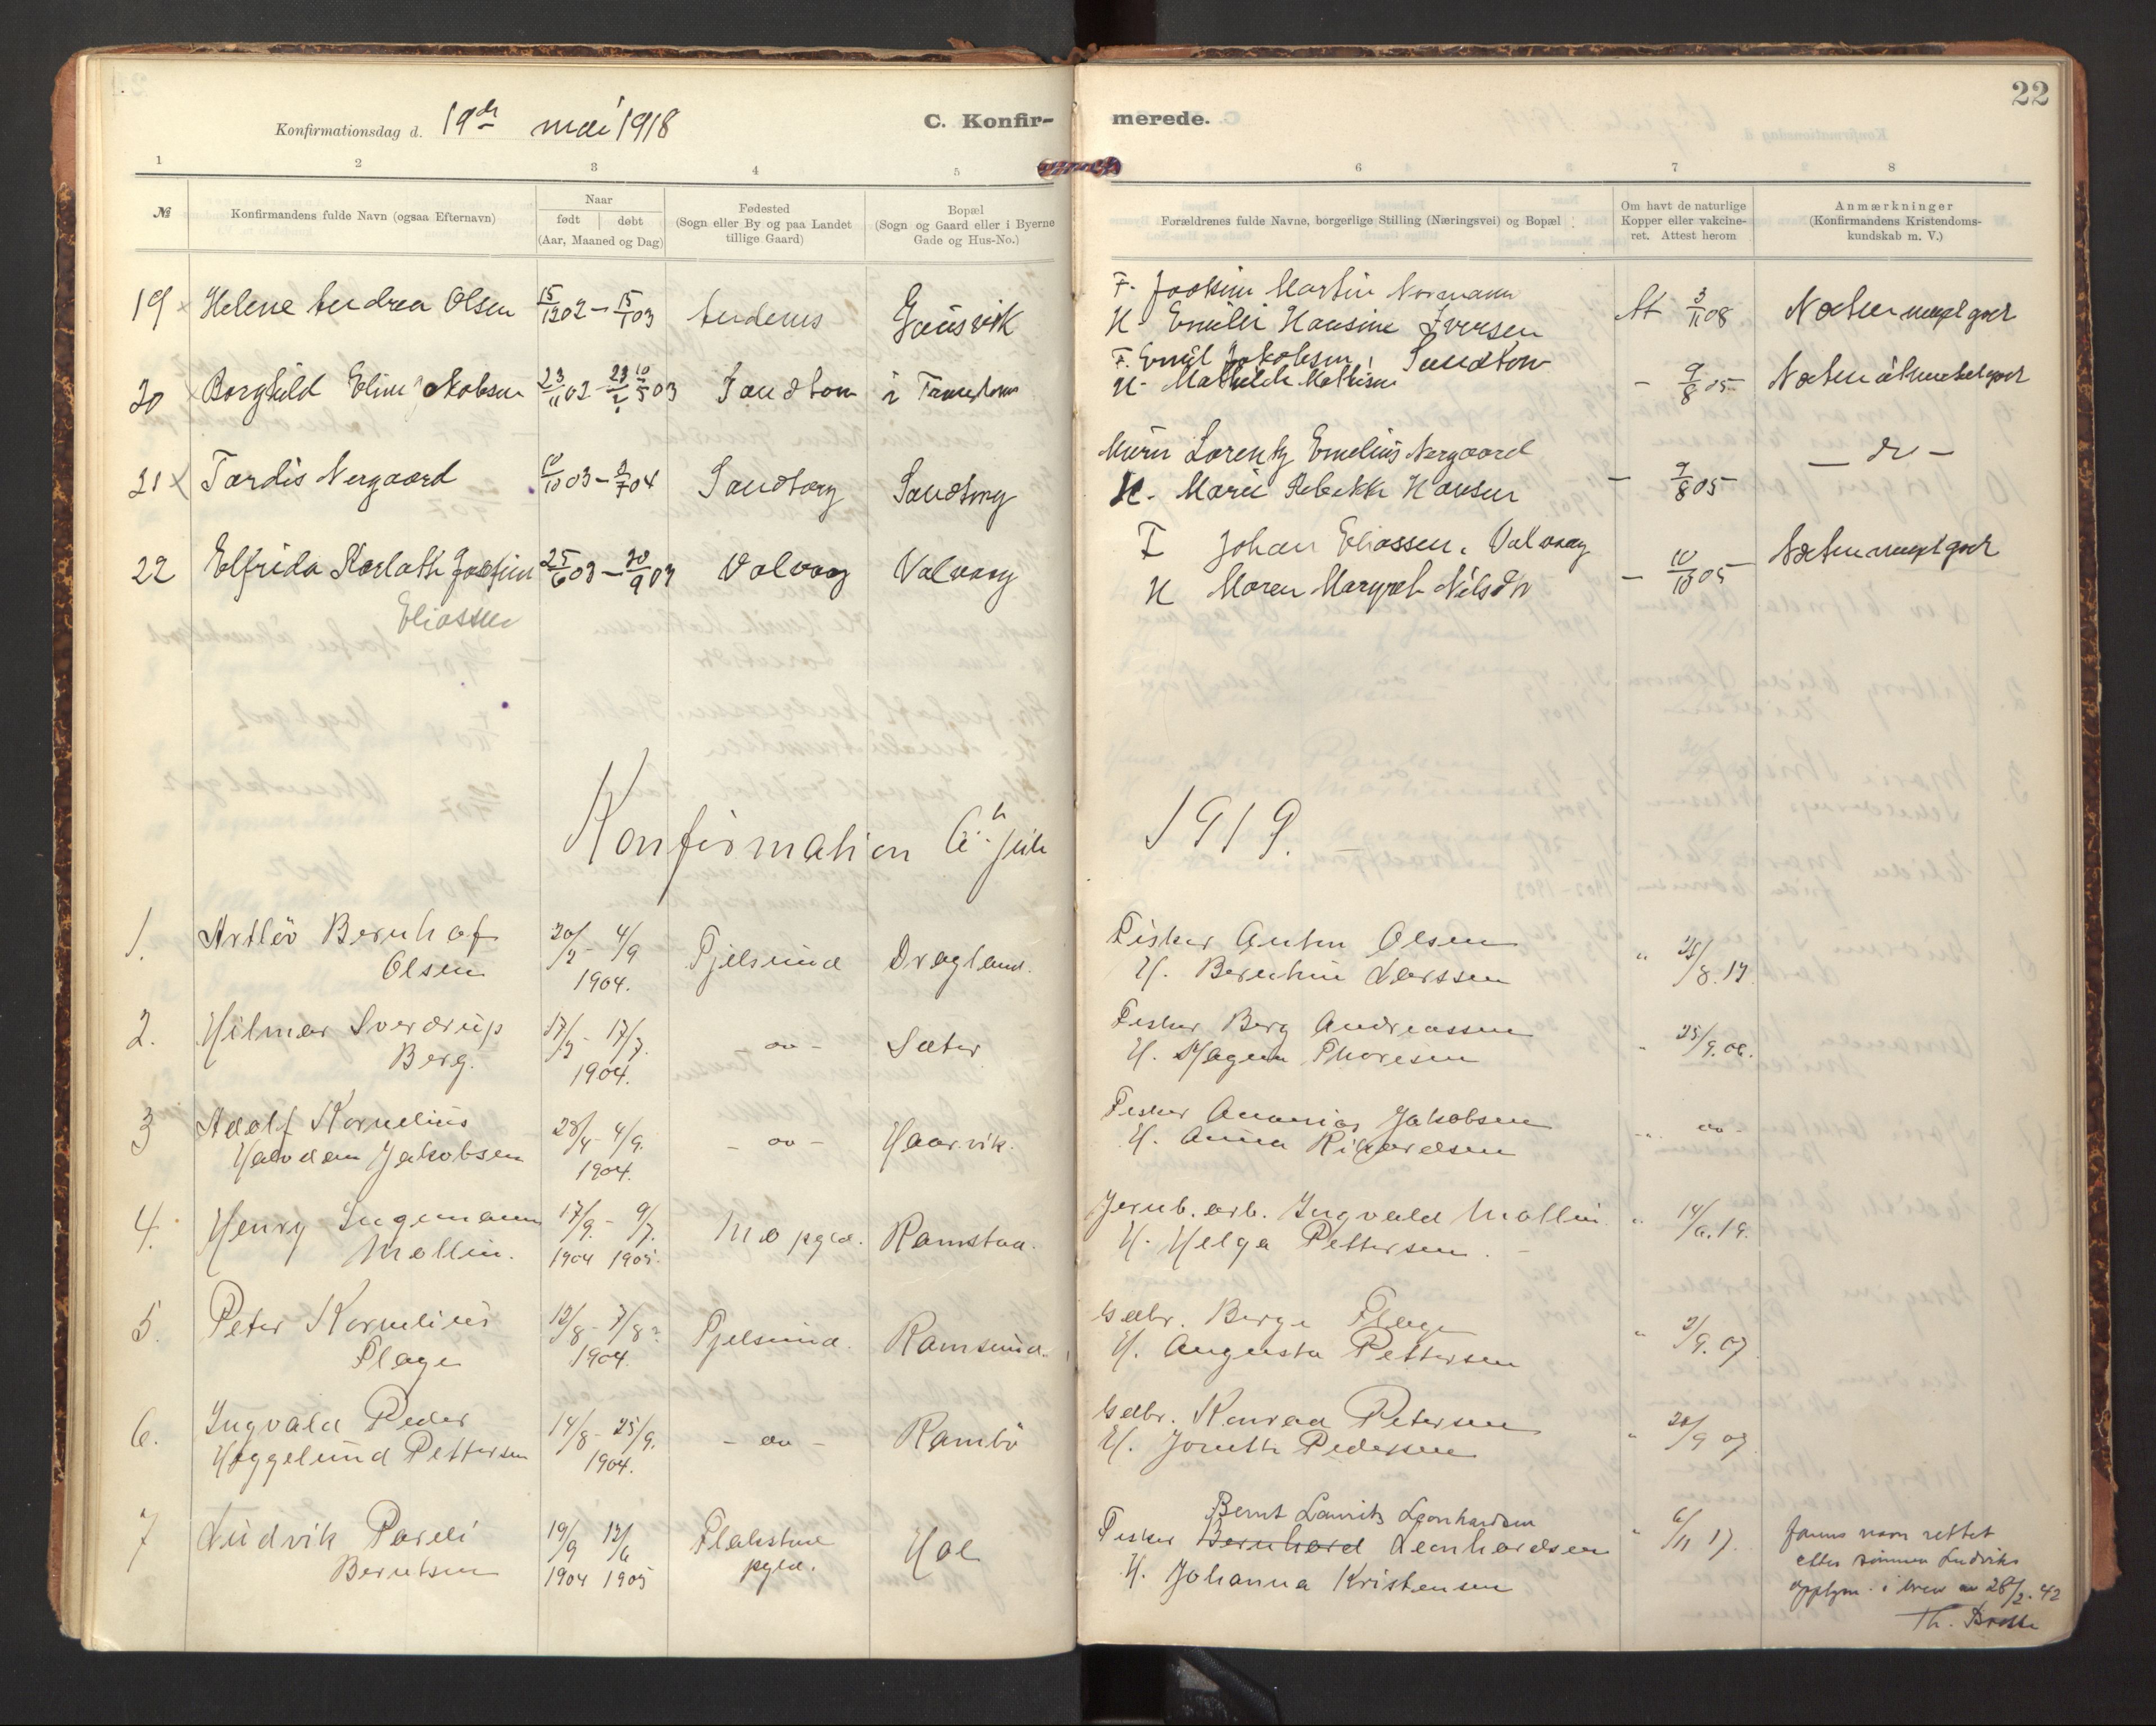 22
Konfirmationsdag d. 19de mai 1918
C. Konfirmerede.
1 2 3 4 5 6 7 8
№
Konfirmandens fulde Navn (ogsaa Efternavn)
Naar
født | døbt
(Aar, Maaned og Dag)
Fødested
(Sogn eller By og paa Landet
tillige Gaard)
Bopæl
(Sogn og Gaard eller i Byerne
Gade og Hus-No.)
Forældrenes fulde Navne, borgerlige Stilling (Næringsvei) og Bopæl
Om havt de naturlige
Kopper eller vakcine-
ret. Attest herom
Anmærkninger
(Konfirmandens Kristendoms-
kundskab m. V.)
19 Helene Andrea Olsen 15/12 02 – 15/1 03 Andenes Gausvik
F. Joakim Martin Normann
H. Emilie Hansine Iversen
At 3/11 08
20 Borghild Eline Jakobsen 23/11 02 Sandtorv
F. Emil Jakobsen, Sandtorv
H. Mathilde Mathisen
– 9/8 05
21 Tordis Nergaard 10/10 03 – 3/7 04 Sandtorg Sandtorg
Murer Lorentz Emelius Nergaard
H. Marie Rebekka Hansen
– 9/8 05 – do –
22 Elfrida Karlotte Josefine 25/6 03 – 20/9 03 Valvaag Valvaag
Eliassen
F Johan Eliassen, Valvaag
H Maren Margret Nilsdtr
– 10/10 05
Konfirmation 6te juli 1919.
1. Artlöv Bernhof
Olsen
20/2 – 4/9
1904.
Fjelsund Dragland.
Fisker Anton Olsen
H. Berntine Larssen
" 25/8. 17.
2. Hilmar Sverdrup
Berg.
17/2 – 17/7.
1904.
– do – Sæter
Fisker Berg Andreassen
H. Hagna Thoresen
" 25/9. 06.
3 Adolf Kornelius
Halvdan Jakobsen
28/4 – 4/9.
1904.
– do – Haarvik.
Fisker Ananias Jakobsen
H. Anna Rikardsen
" – do –
4. Henry Ingemann
Mollin.
17/9. – 9/7.
1904 1905.
Mo pgld. Ramstad.
Jernb. arb. Ingvald Mollin
H. Helga Pettersen.
" 14/6. 19.
5. Peter Kornelius
Plage
12/8 – 7/8?
1904.
Fjelsund. Ramsund.
Gdbr. Berge Plage
H. Augusta Pettersen
" 2/9. 07
6. Ingvald Peder
Heggelund Pettersen
14/8 – 25/9.
1904.
– do – Rambö
Gdbr. Konrad Petersen
H. Jonette Pedersen
" 20/9 07
7 Ludvik Pareli
Berntsen
19/9 12/6
1904 1905
Flakstad
pgld.
Hol
Bernt Laurits Leonhardsen
Fisker Bernhard Leonhardsen
H. Johanna Kristensen
" 6/11 17.
farens navn rettet
efter sönnen Ludviks
opplysn. i brev av 28/2. 42